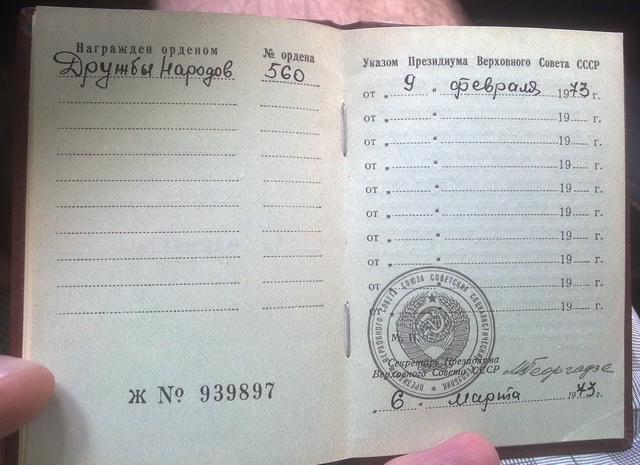 Награжден орденом № ордена
Дружбы Народов 560
Ж № 939897
Указом Президиума Верховного Совета СССР
от „ 9 “ февраля 1973 г.
от „ “ 19 г.
от „ “ 19 г.
от „ “ 19 г.
от „ “ 19 г.
от „ “ 19 г.
от „ “ 19 г.
от „ “ 19 г.
от „ “ 19 г.
„ 19 г.
М. П.
Секретарь Президиума
Верховного Совета СССР МГеоргадзе
„ 6 “ марта 1973 г.
ПРЕЗИДИУМ ВЕРХОВНОГО СОВЕТА СОЮЗА СОВЕТСКИХ СОЦИАЛИСТИЧЕСКИХ РЕСПУБЛИК